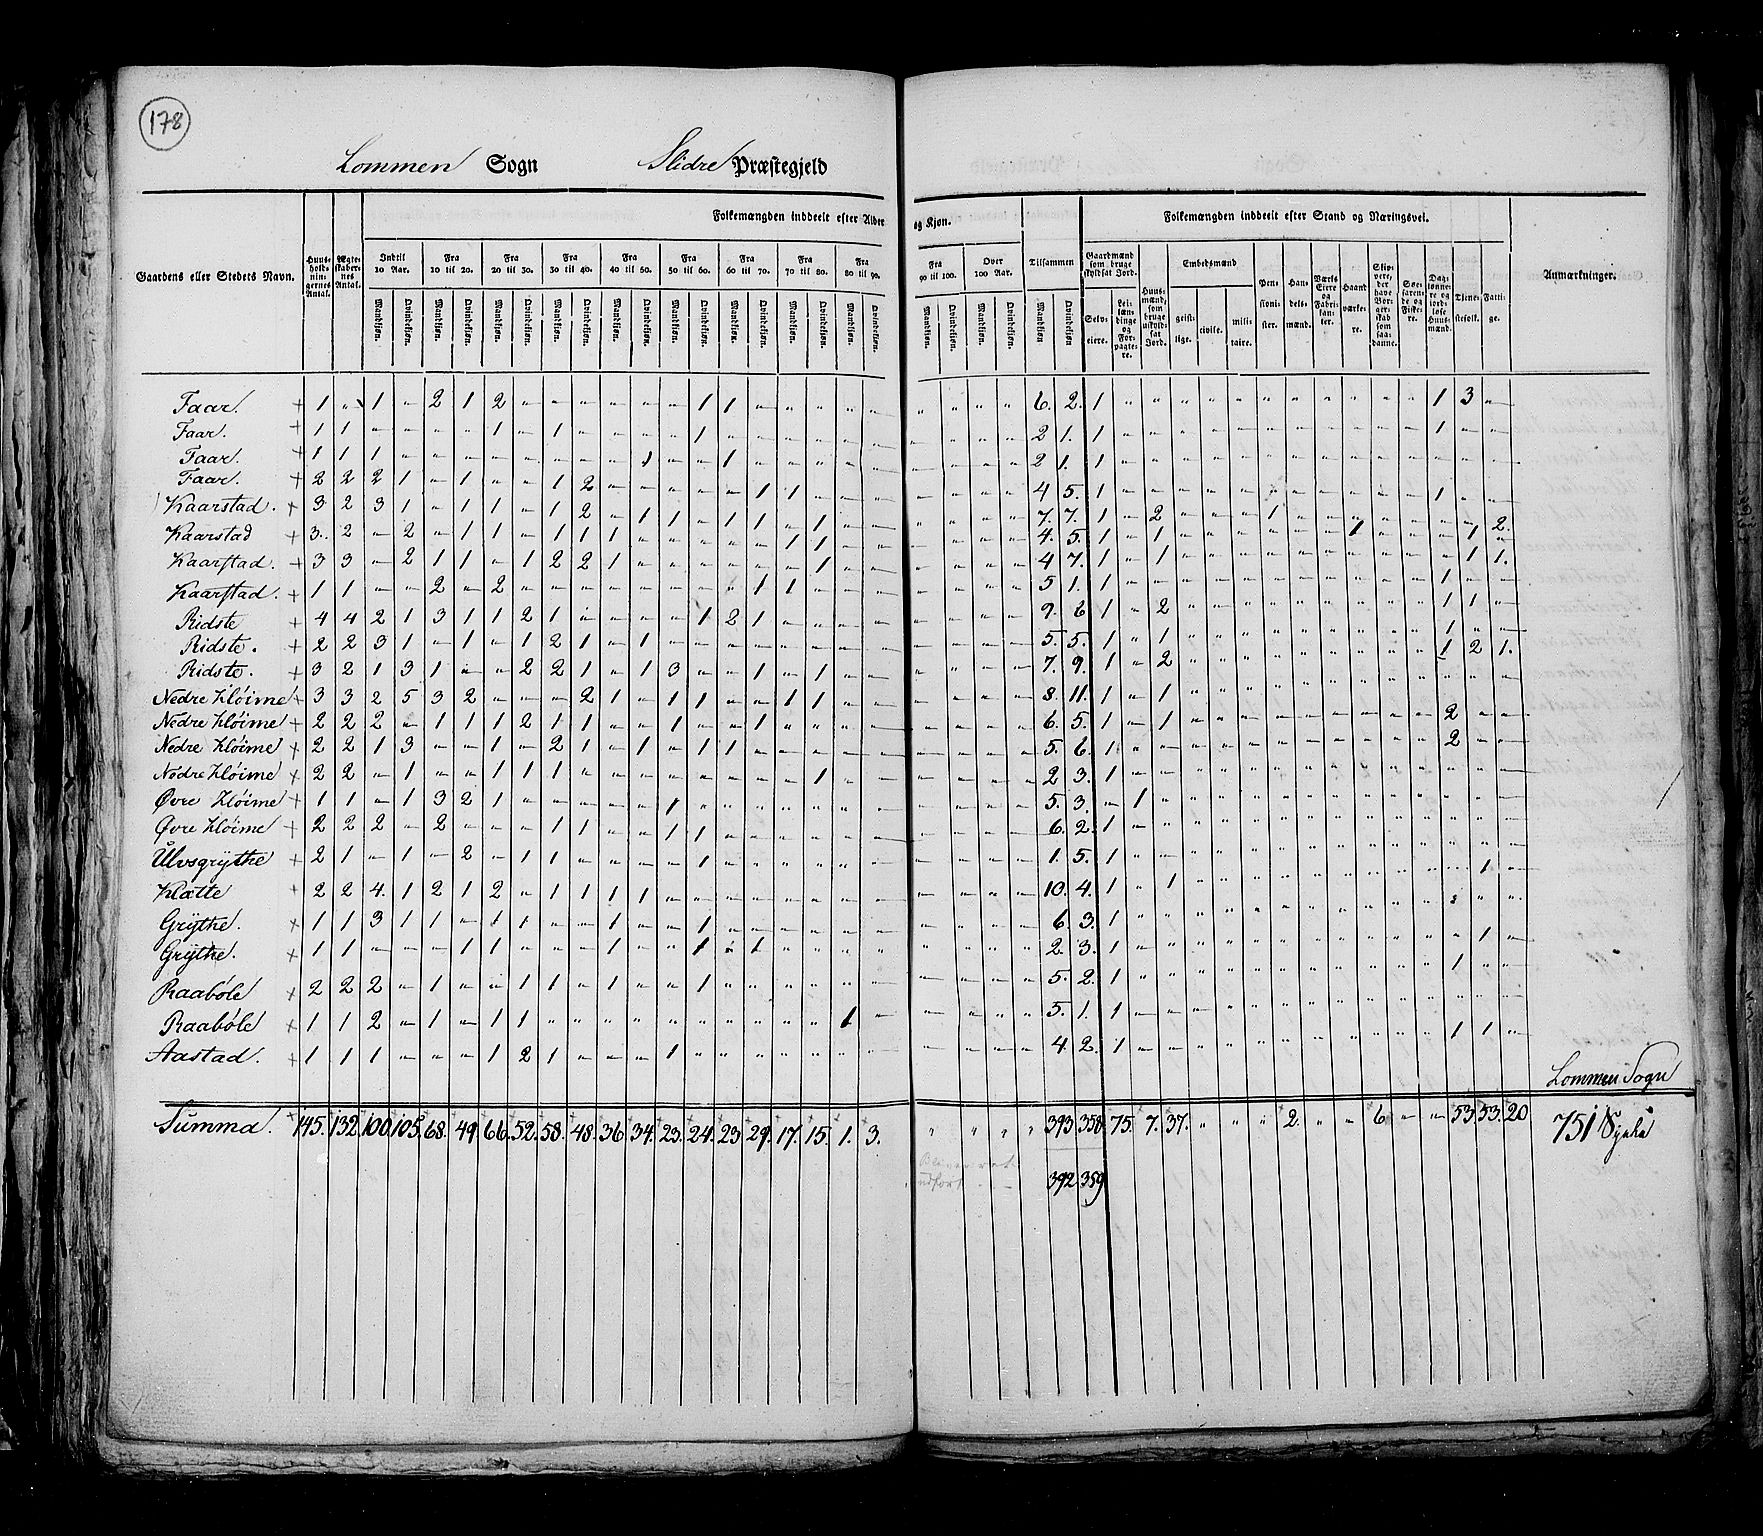 178
Lommen Sogn Slidre Præstegjeld
Gaardens eller Stedets Navn.
Huus-hold-nin-gernes Antal.
Ægte-skaber-nes Antal.
Folkemængden inddeelt efter Alder og Kjøn.
Indtil 10 Aar.
Fra 10 til 20.
Fra 20 til 30.
Fra 30 til 40.
Fra 40 til 50.
Fra 50 til 60.
Fra 60 til 70.
Fra 70 til 80.
Fra 80 til 90.
Fra 90 til 100.
Over 100 Aar.
Tilsammen
Mandkjøn. Qvindekjøn.
Folkemængden inddeelt efter Stand og Næringsvei.
Gaardmænd som bruge skyldsat Jord.
Selv-eiere.
Lei-læn-dinge og For-pagte-re.
Huus-mænd, som bruge uskyld-sat Jord.
Embedsmænd
geist-lige.
civile.
mili-taire.
Pen-sioni-ster.
Han-dels-mænd.
Værks Eiere og Fabri-kan-ter.
Haand værke-re.
Skip-pere, der have Bor-ger-skab som saa-danne.
Søe-faren-de og Fiske-re.
Dag-lønne-re og jord-løse Huus-mænd.
Tjene-stefolk.
Fatti-ge.
Anmærkninger.
Faar. 1 " 1 " 2 1 2 1 1 6. 2. 1 1 3
Faar. 1 1 1 1 1 2 1. 1 1
Faar. 1 1 1 1 1 2 1. 1
Faar. 2 2 2 1 1 1 2 1 1 4 5. 1 1
Kaarstad. 3 2 3 1 1 1 1 2 1 1 1 1 1 7. 7. 1 2 1 1 2.
Kaarstad 3. 2 2 1 1 1 1 1 1 1 4. 5. 1 1 1 1
Kaarstad. 3 3 2 1 1 1 2 2 1 1 4 7. 1 1 1 1.
Kaarstad. 1 1 2 2 1 1 5 1. 1 1
Ridste 4 4 2 1 3 1 1 2 1 1 2 1 9. 6 1 2 1 1
Ridste. 2 2 3 1 1 1 2 1 1 5. 5. 1 1 1
Ridste. 3 2 1 3 1 2 2 1 1 3 1 1 7. 9. 1 2 1 2 1.
Nedre Kløime 3 3 2 5 3 2 2 1 1 1 1 1 8 11. 1 1
Nedre Kløime 2 2 2 1 1 1 2 1 1 1 1 6. 5. 1 1 2
Nedre Kløime 2 2 1 3 1 2 1 1 1 1 5. 6. 1 2
Nedre Kløime 2 2 1 1 1 1 1 2 3. 1
Øvre Kløime 1 1 1 3 2 1 1 5. 3. 1
Øvre Kløime 2 2 2 2 1 1 1 1 6. 2. 1
Ulvsgrythe 2 1 1 2 1 1 1 1. 5. 1 1
Klætte 2 2 4. 1 2 1 2 1 1 1 1 10. 4. 1 1
Grythe. 1 1 3 1 1 1 1 1 1 6. 3. 1
Grythe. 1 1 1 1 1 1 1 2. 3. 1 1
Raabøle 2 2 2 1 1 1 1 1 5. 2. 1 1
Raabøle 1 1 2 1 1 1 1 5. 1. 1
Aastad. 1 1 1 1 2 1 1 4. 2. 1 1 1
Lommen Sogn
Summa. 145. 132. 100. 105. 68. 49. 66. 52. 58. 48. 36. 34. 23. 24. 23 29. 17. 15. 1. 3. 393 358. 75. 7. 37. 2. 6 53. 53. 20 751
392 359